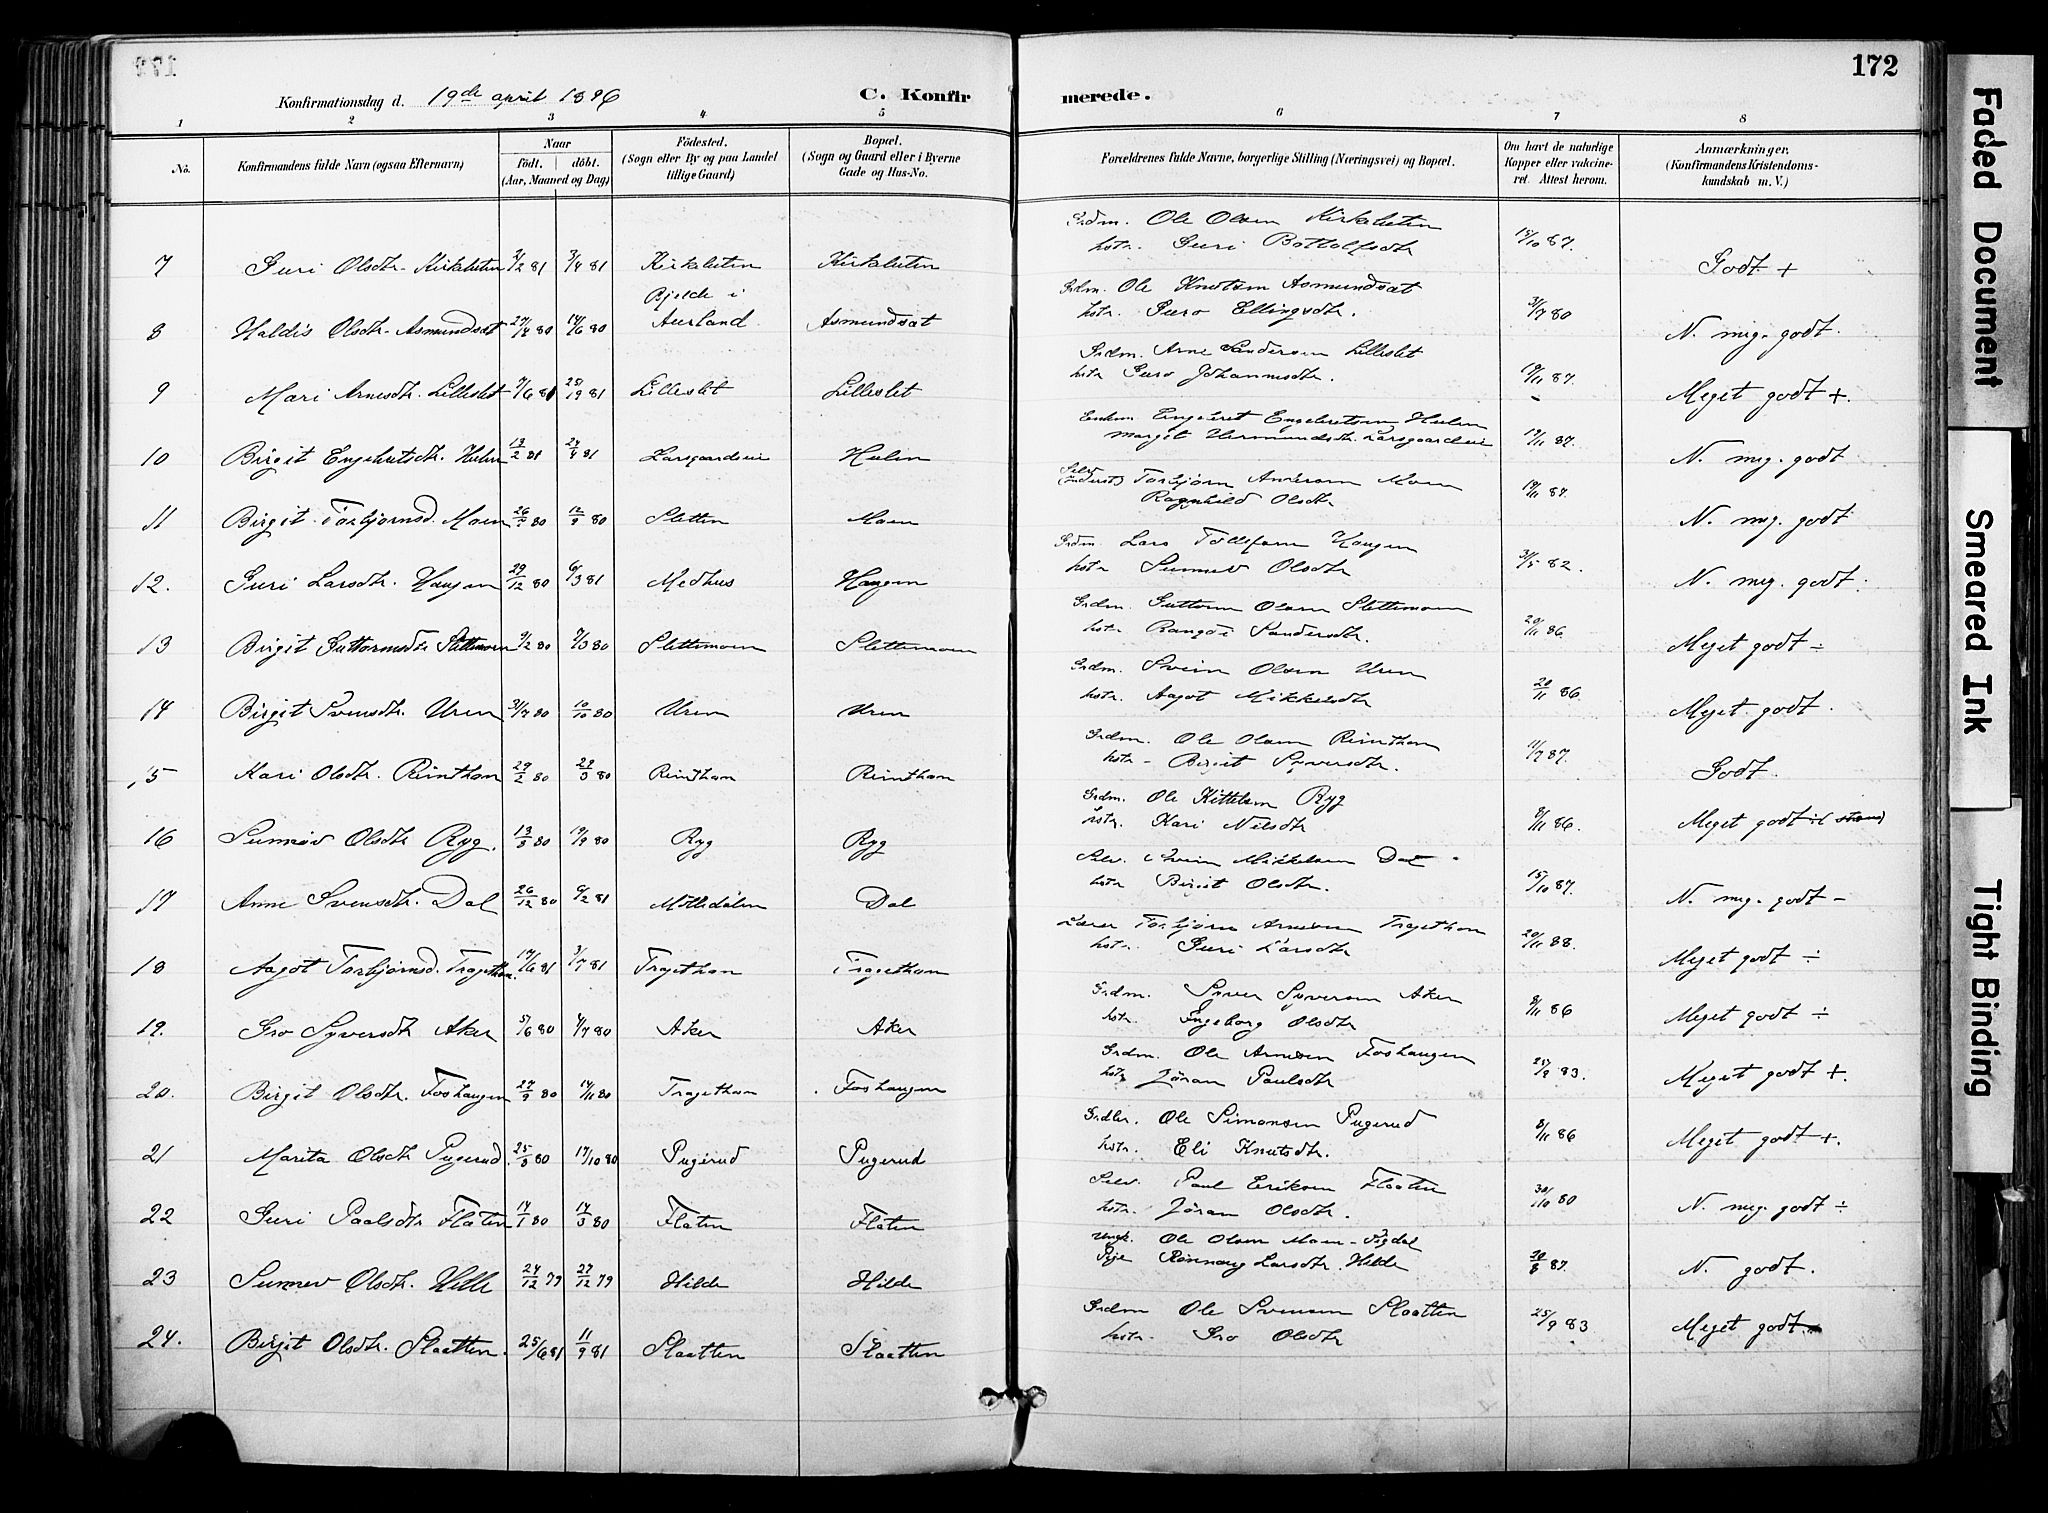 172
Konfirmationsdag d. 19de april 1896
C. Konfirmerede.
1 2 3 4 5 6 7 8
No.
Konfirmandens fulde Navn (ogsaa Efternavn)
Naar
født. døbt.
(Aar, Maaned og Dag)
Födested.
(Sogn eller By og paa Landet
tillige Gaard)
Bopæl.
(Sogn og Gaard eller i Byerne
Gade og Hus-No.
Forældrenes fulde Navne, borgerlige Stilling (Næringsvei) og Bopæl.
Om havt de naturlige
Kopper eller vakcine-
ret. Attest herom.
Anmærkninger.
(Konfirmandens Kristendoms-
kundskab m. V.)
Grdm. Ole Olsen Kirkeluten
hstr. Guri Bottolfsdtr 18/10 87.
7 Guri Olsdtr. Kirkeluten 2/2 81 3/4 81 Kirkeluten Kirkeluten Godt +
Bjelde i
Grdm. Ole Knutsen Asmundsat
hstr. Guro Ellingsdtr. 31/7 80
8 Haldis Olsdtr. Asmundsat 27/4 80 14/6 80 Aurland Asmundsat N. meg. godt.
Grdm. Arne Sandersen Lilleslet
hstr Guro Johannesdtr. 19/11 87.
9 Mari Arnesdtr. Lilleslet 7/6 81 25/9 81 Lilleslet Lilleslet Meget godt +.
Enkem Engebret Engebretsen Hulin
Marget Hermundsdtr. Larsgaardseie 19/11 87.
10 Birgit Engebretsdtr. Hulin 13/2 81 24/4 81 Larsgaardseie Hulin N. meg. godt
Selv
(inderst) Torbjørn Andersen Moen
Ragnhild Olsdtr 19/11 87.
11 Birgit Torbjørnsd. Moen 26/7 80 12/9 80 Sletten Moen N. meg. godt
Grdm. Lars Tollefsen Haugen
hstr Sunnev Olsdtr 31/5 82.
12. Guri Larsdtr. Haugen 29/12 80 6/3 81 Medhus Haugen N. meg. godt.
Grdm. Guttorm Olsen Slettemoen
hstr Rangdi Sandersdtr. 20/11 86.
13 Birgit Guttormsdtr Slettemoen 9/2 80 7/3 80 Slettemoen Slettemoen Meget godt ÷
Grdm. Svein Olsen Uren
hstr. Aagot Mikkelsdtr 20/11 86
14 Birgit Svensdtr. Uren 31/7 80 10/10 80 Uren Uren Meget godt.
Grdm. Ole Olsen Reinthon
hstr - Birgit Syversdtr. 11/7 87.
15 Kari Olsdtr. Reinthon 29/2 80 29/3 80 Reinthon Reinthon Godt.
Grdm. Ole Kittelsen Ryg
hstr Kari Nilsdtr 8/11 86.
16 Sunnøv Olsdtr Ryg. 13/8 80 19/9 80 Ryg Ryg Meget godt
Selv. Svein Mikkelsen Dal
hstr Birgit Olsdtr. 15/10 87.
17 Anne Svensdtr. Dal 26/12 80 6/2 81 Mølledalen Dal N. meg. godt -
Lærer Torbjørn Arnesen Trøgethon
hstr. Guri Larsdtr 20/11 88.
18 Aagot Torbjørnsd. Trøgethon. 14/6 81 3/7 81 Trøgethon Trøgethon Meget godt ÷
Grdm. Syver Syversen Aker
hstr. Ingeborg Olsdtr 8/11 86
19. Gro Syversdtr Aker 5/6 80 4/7 80 Aker Aker Meget godt ÷
Grdm. Ole Arnesen Foshaugen
hstr Jöran Paulsdtr 25/9 83.
20. Birgit Olsdtr. Foshaugen 27/9 80 14/11 80 Trøgethon Foshaugen Meget godt +.
Grdbr. Ole Simonsen Pugerud
hstr. Eli Knutsdtr. 8/11 86
21 Marita Olsdtr Pugerud. 25/8 80 17/10 80 Pugerud Pugerud Meget godt +.
Selv. Paul Eriksen Flaaten
hstr. Jöran Olsdtr. 30/10 80
22 Guri Paalsdtr Flåten 14/1 80 14/3 80 Flåten Flåten N. meg. godt ÷
Ungk. Ole Olsen Moen - Sigdal
Pige Rønnaug Larsdtr. Hilde 20/8 87.
23 Sunnev Olsdtr. Hille 24/12 79 27/12 79 Hilde Hilde N. godt.
Grdm Ole Svensen Slaatten
hstr. Gro Olsdtr 25/9 83
24. Birgit Olsdtr. Slaatten. 25/6 81 11/9 81 Slaatten Slaatten Meget godt
Faded Document
Smeared Ink
Tight Binding